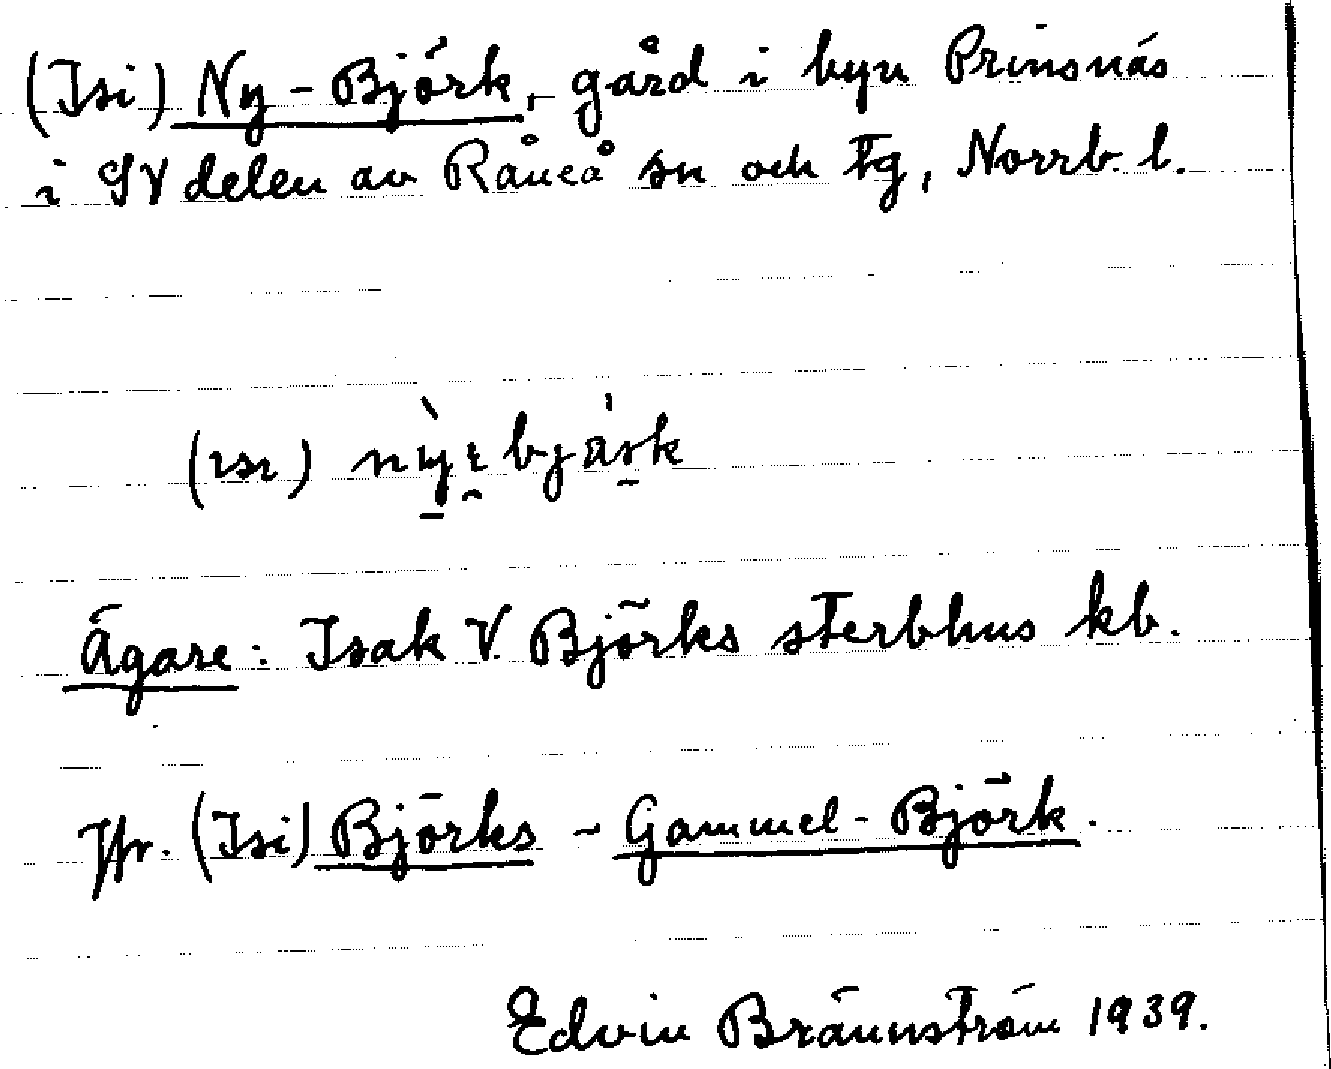 (Isi) Ny-Björk, gård i byn Prinsnäs
i SV delen av Råneå sn och tg, Norrb. l.
(ısı)
Ägare: Isak V. Björks sterbhus kb.
Jfr. (Isi) Björks - Gammel-Björk.
Edvin Brännström 1939.